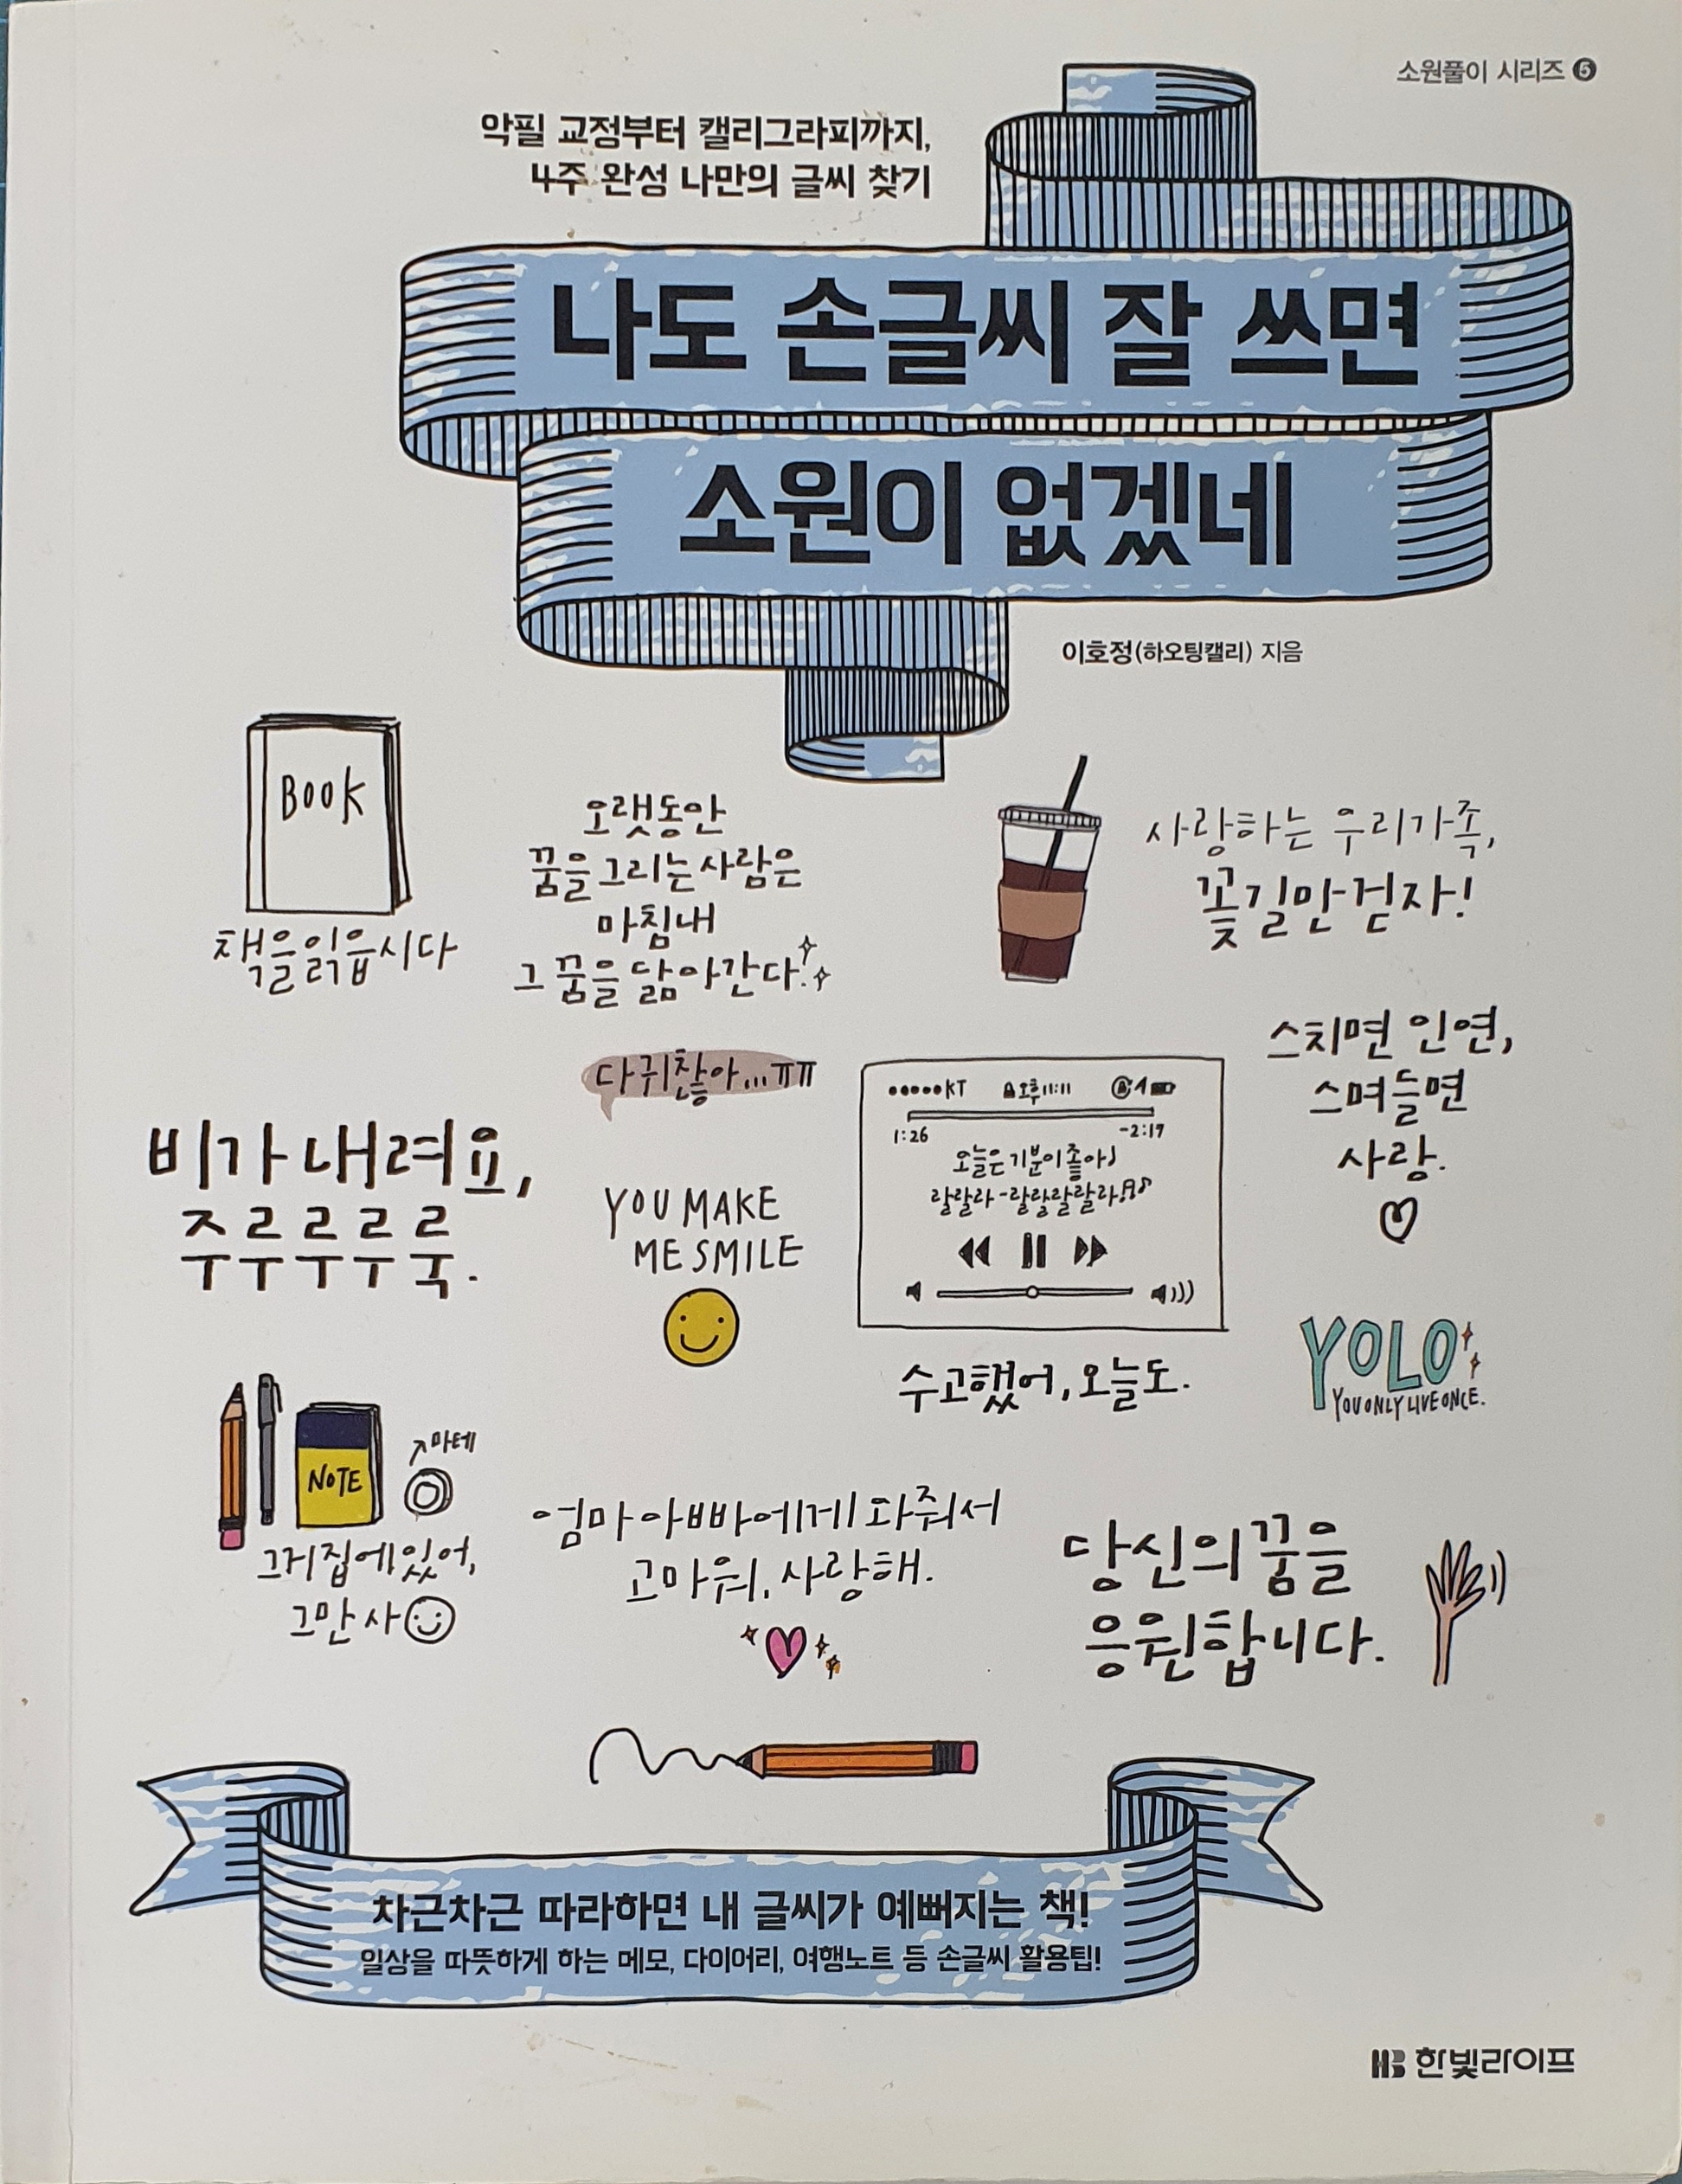 소원풀이 시리즈 5
악필 교정부터 캘리그라피까지,
4주 완성 나만의 글씨 찾기
나도 손글씨 잘 쓰면
소원이 없겠네
이호정(하오팅캘리) 지음
BOOK
책을읽읍시다
오랫동안
꿈을그리는사람은
마침내
그꿈을닮아간다.
사랑하는 우리가족,
꽃길만걷자!
다귀찮아...ㅠㅠ
스치면 인연,
스며들면
사랑.
비가내려요,
주루루루룩.
YOU MAKE
ME SMILE
KT 오후11:11
1:26 -2:17
오늘은기분이좋아♪
랄랄라-랄랄랄랄라
수고했어, 오늘도.
YOLO
YOU ONLY LIVE ONCE.
NOTE
마테
그거집에있어,
그만사
엄마아빠에게와줘서
고마워. 사랑해.
당신의꿈을
응원합니다.
차근차근 따라하면 내 글씨가 예뻐지는 책!
일상을 따뜻하게 하는 메모, 다이어리, 여행노트 등 손글씨 활용팁!
HB 한빛라이프